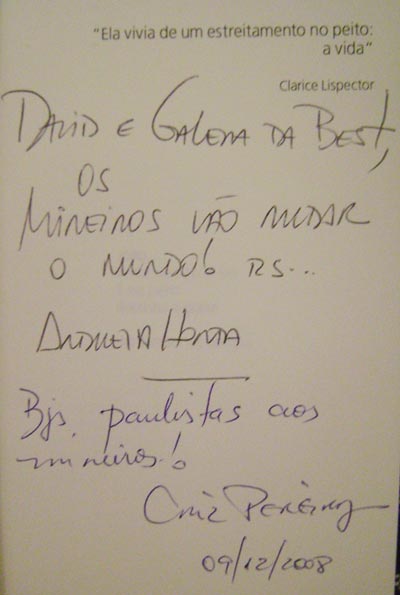 “Ela vivia de um estreitamento no peito:
a vida”
Clarice Lispector
DAVID E GALERA DA BEST,
OS
MINEIROS VÃO MUDAR
O MUNDO! RS...
ANDREIA HORTA
Bjs. paulistas aos
mineiros!
Pereira
09/12/2008